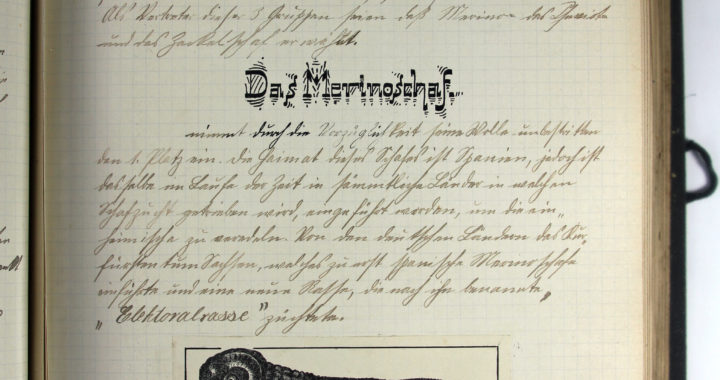 Als Vertreter dieser 3 Gruppen seien daß Merino- das Cheviot-
und das Zackelschaf erwähnt.
Das Merinoschaf.
nimmt durch die Vorzüglichkeit seine Wolle unbestritten
den 1. Platz ein. Die Haimat dieses Schafes ist Spanien, jedoch ist
dasselbe im Laufe der Zeit in sämmtliche Länder in welchen
Schafzucht getrieben wird, eingeführt worden, um die ein„
heimische zu veredeln. Von den deutschen Ländern das Kur„
fürstentum Sachsen, welches zu erst spanische Merinoschafe
einführte und eine neue Rasse, die nach ihr benannte„
„Elektoralrasse” züchtete.